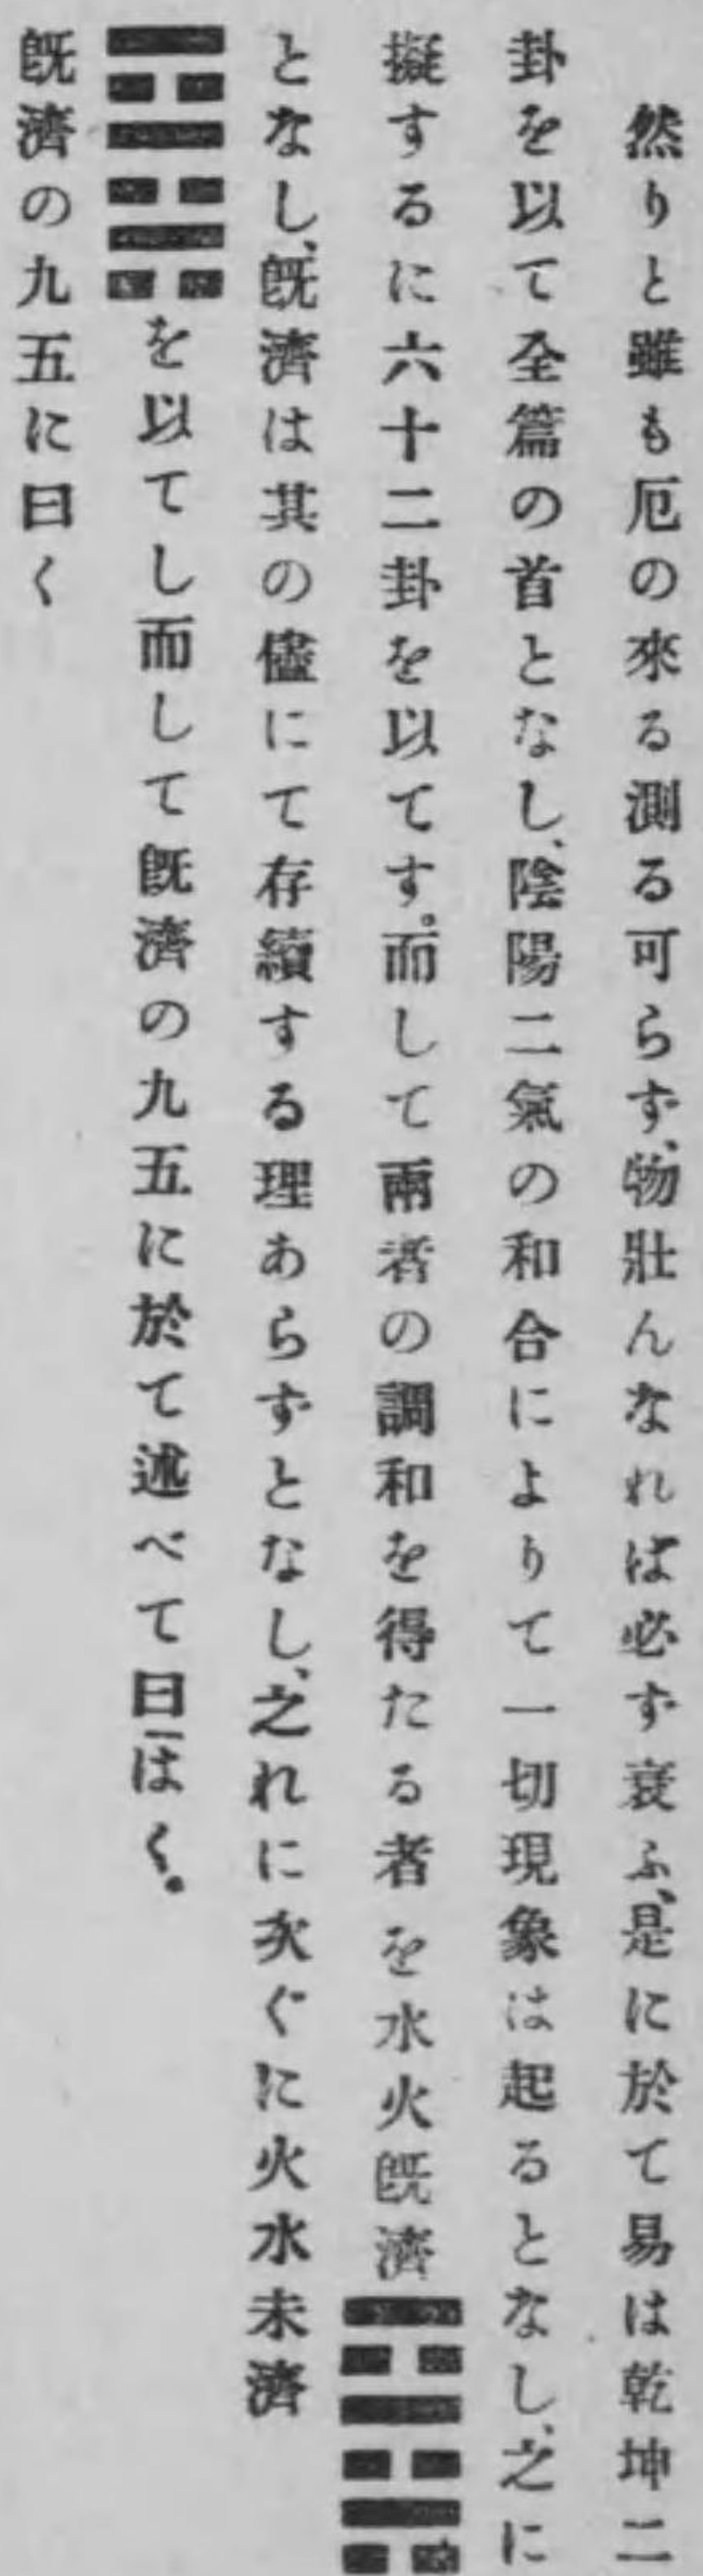 然りと雖も厄の來る測る可らず、物壯んなれば必ず衰ふ、是に於て易は乾坤二
卦を以て全篇の首となし、陰陽二氣の和合によりて一切現象は起るとなし、之に
擬するに六十二卦を以てす。而して兩者の調和を得たる者を水火既濟䷿
となし、既濟は其の儘にて存續する理あらずとなし、之れに次ぐに火水未濟
䷿を以てし而して既濟の九五に於て述べて曰はく。
既濟の九五に曰く